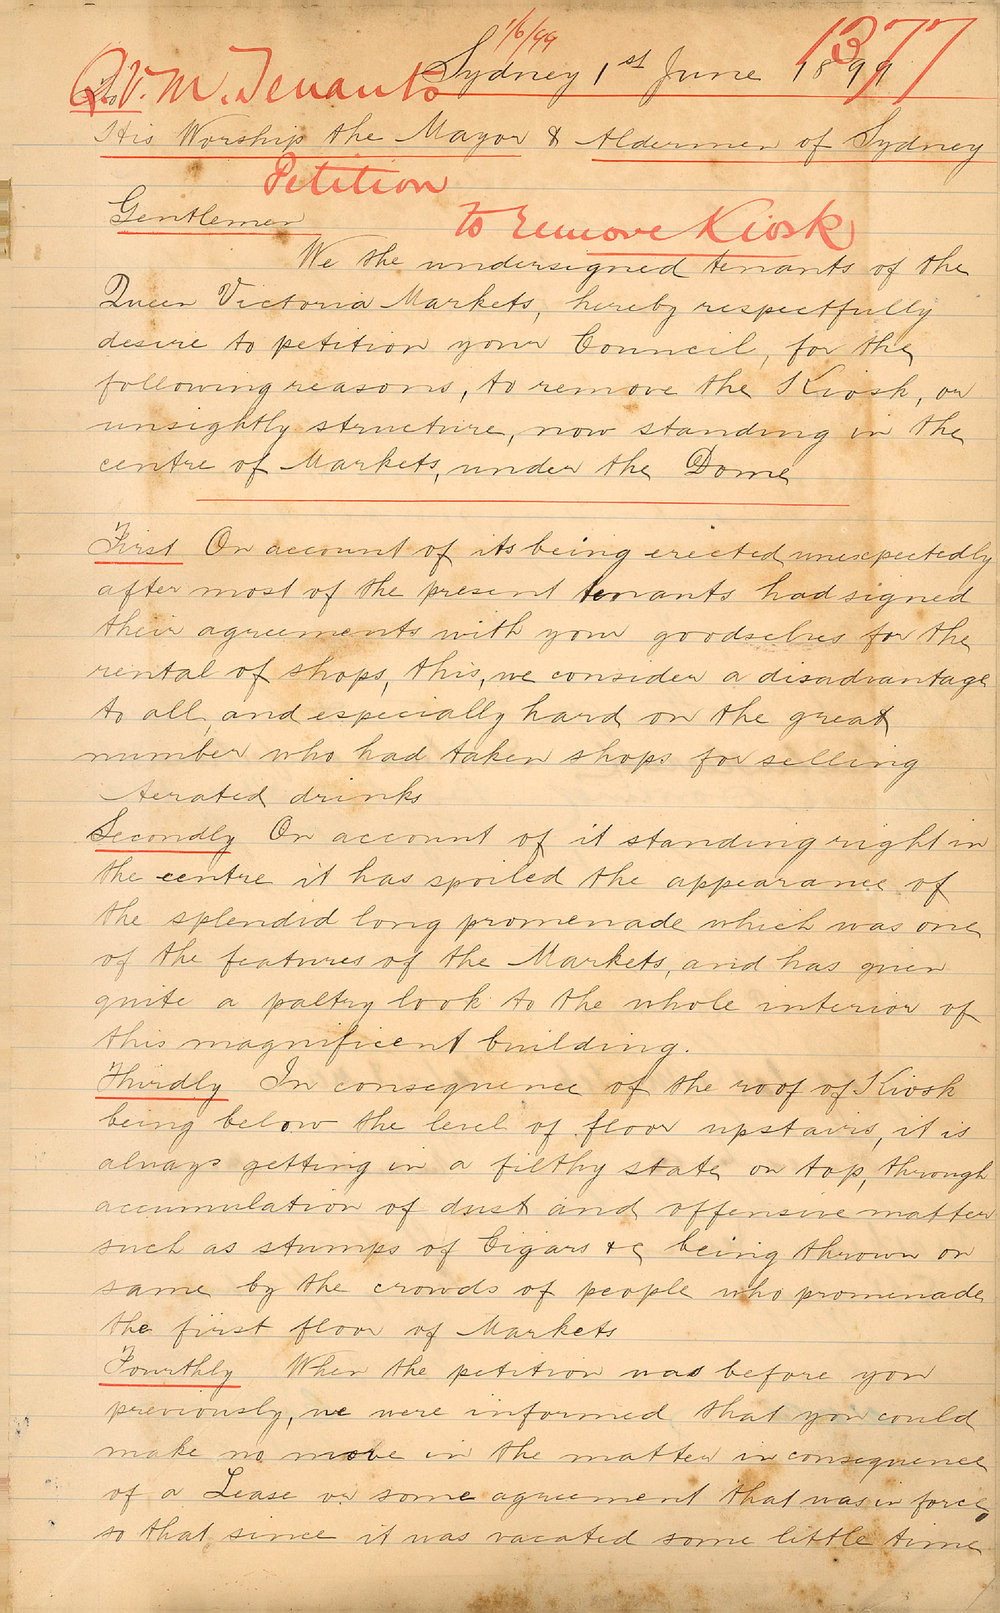 1/6/99
1377
Q.V.M. Tenants
Sydney 1st June 1899
To
His Worship the Mayor & Aldermen of Sydney
Petition
to remove Kiosk
Gentlemen
We the undersigned tenants of the
Queen Victoria Markets, hereby respectfully
desire to petition your Council, for the
following reasons, to remove the Kiosk, or
unsightly structure, now standing in the
centre of Markets, under the Dome
First On account of its being erected unexpectedly
after most of the present tenants had signed
their agreements with your goodselves for the
rental of shops, this, we consider a disadvantage
to all, and especially hard on the great
number who had taken shops for selling
Aerated drinks
Secondly On account of it standing right in
the centre it has spoiled the appearance of
the splendid long promenade which was one
of the features of the Markets, and has given
quite a paltry look to the whole interior of
this magnificent building.
Thirdly In consequence of the roof of Kiosk
being below the level of floor upstairs, it is
always getting in a filthy state on top, through
accumulation of dust and offensive matter
such as stumps of Cigars &c being thrown on
same by the crowds of people who promenade
the first floor of Markets
Fourthly When the petition was before you
previously, we were informed that you could
make no move in the matter in consequence
of a Lease or some agreement that was in force,
so that since it was vacated some little time